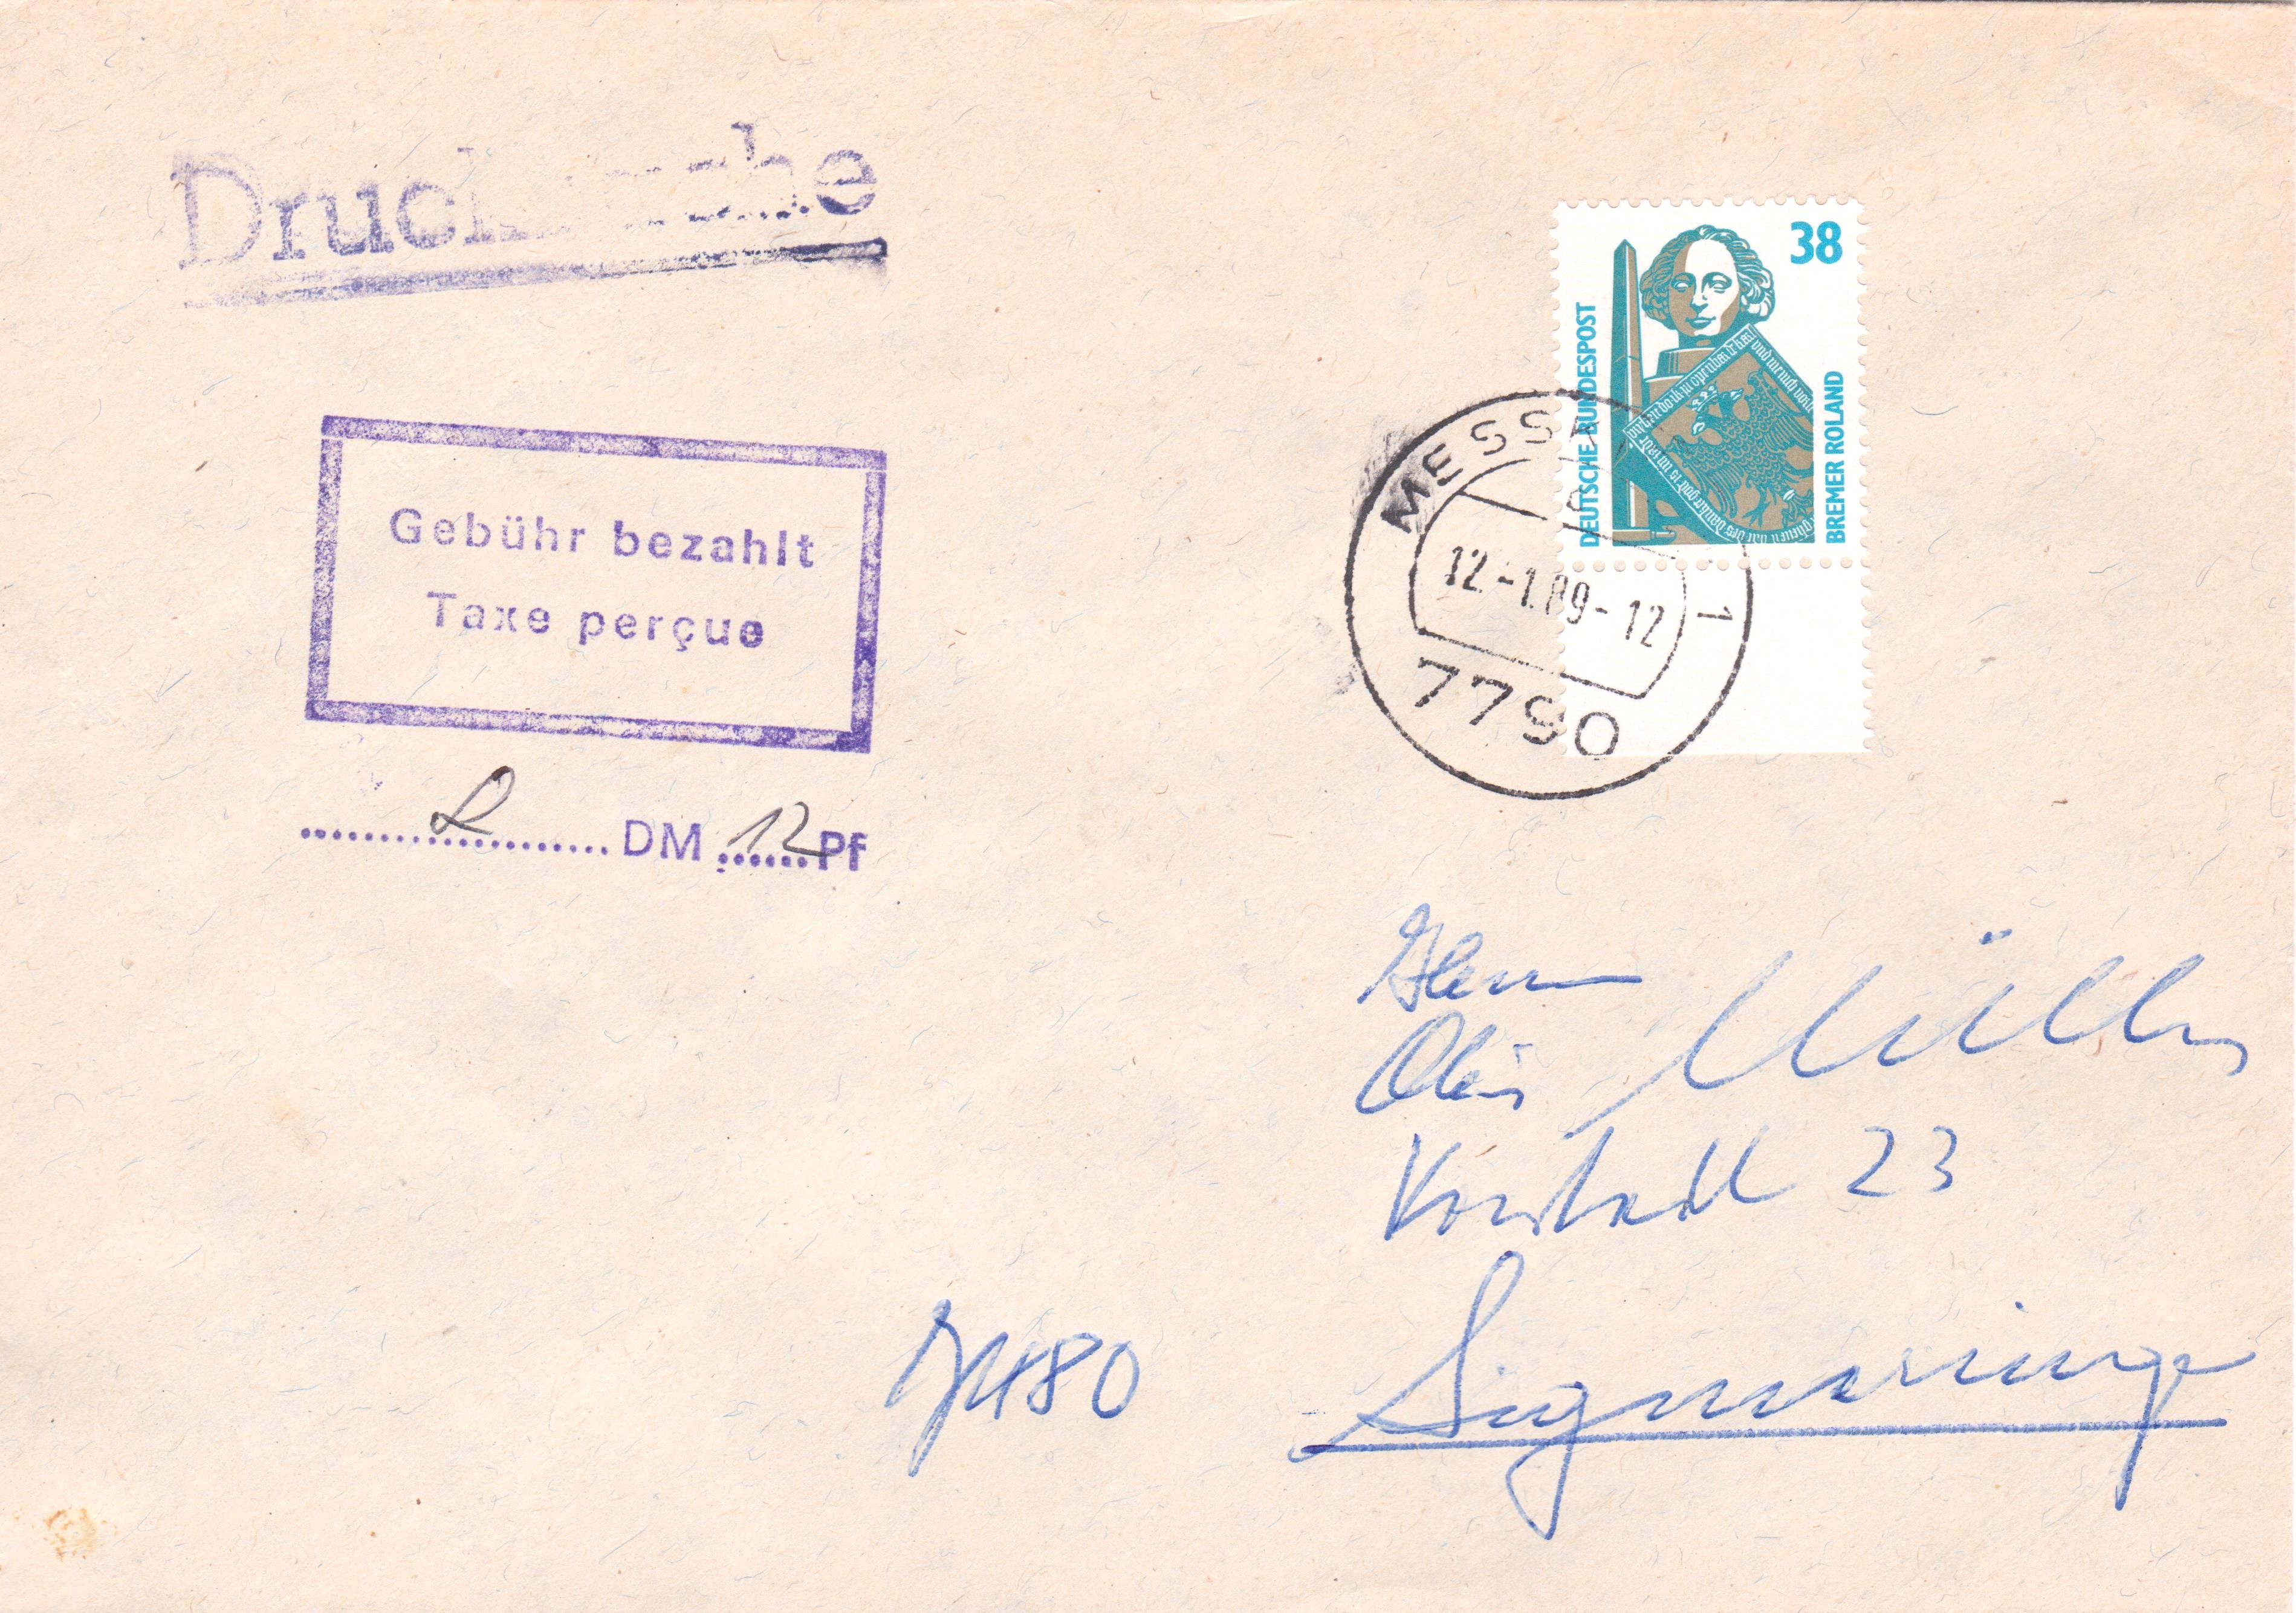 Drucksache
38
DEUTSCHE BUNDESPOST
BREMER ROLAND
MESSKIRCH
12.-1.89-12
1
7790
Gebühr bezahlt
Taxe perçue
2 DM 12 Pf
Herrn
Müller
Vorstadt 23
7480 Sigmaringen